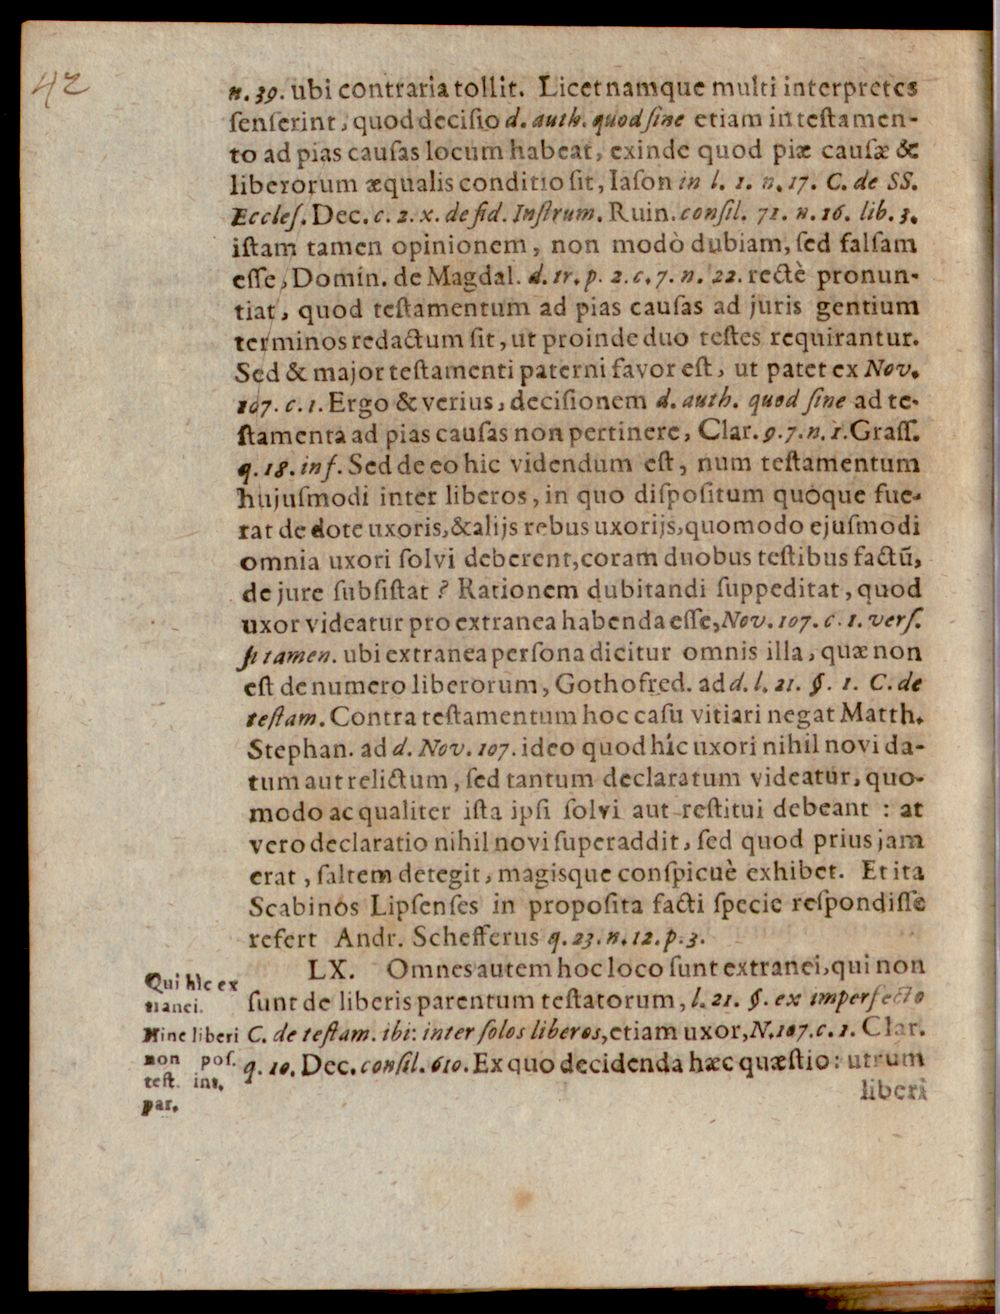 42
n. 39. ubi contraria tollit. Licet namque multi interpretes
ſenſerint, quod deciſio d. auth. quod ſine etiam in teſtamen-
to ad pias cauſas locum habeat, exinde quod piæ cauſæ &
liberorum æqualis conditio ſit, Iaſon in l. 1. n. 17. C. de SS.
Eccleſ. Dec. c. 2. x. de fid. Inſtrum. Ruin. conſil. 71. n. 16. lib. 3.
iſtam tamen opinionem, non modò dubiam, ſed falſam
eſſe, Domin. de Magdal. d. tr. p. 2. c. 7. n. 22. rectè pronun-
tiat, quod teſtamentum ad pias cauſas ad juris gentium
terminos redactum ſit, ut proinde duo teſtes requirantur.
Sed & major teſtamenti paterni favor eſt, ut patet ex Nov.
107. c. 1. Ergo & verius, deciſionem d. auth. quod ſine ad te-
ſtamenta ad pias cauſas non pertinere, Clar. q. 7. n. 1. Graſſ.
q. 18. inf. Sed de eo hic videndum eſt, num teſtamentum
hujuſmodi inter liberos, in quo diſpoſitum quoque fue-
rat de dote uxoris, & alijs rebus uxorijs, quomodo ejuſmodi
omnia uxori ſolvi deberent, coram duobus teſtibus factū,
de jure ſubſiſtat? Rationem dubitandi ſuppeditat, quod
uxor videatur pro extranea habenda eſſe, Nov. 107. c. 1. verſ.
ſi tamen. ubi extranea perſona dicitur omnis illa, quæ non
eſt de numero liberorum, Gothofred. ad d. l. 21. §. 1. C. de
teſtam. Contra teſtamentum hoc caſu vitiari negat Matth.
Stephan. ad d. Nov. 107. ideo quod hîc uxori nihil novi da-
tum aut relictum, ſed tantum declaratum videatur, quo-
modo ac qualiter iſta ipſi ſolvi aut reſtitui debeant : at
vero declaratio nihil novi ſuperaddit, ſed quod prius jam
erat, ſaltem detegit, magisque conſpicuè exhibet. Et ita
Scabinos Lipſenſes in propoſita facti ſpecie reſpondiſſe
refert Andr. Schefferus q. 23. n. 12. p. 3.
LX. Omnes autem hoc loco ſunt extranei, qui non
ſunt de liberis parentum teſtatorum, l. 21. §. ex imperfecto
C. de teſtam. ibi: inter ſolos liberos, etiam uxor, N. 107. c. 1. Clar.
q. 10. Dec. conſil. 610. Ex quo decidenda hæc quæſtio: utrum
liberi
Qui hîc ex
tranei.
Hinc liberi
non poſ.
teſt. int.
par.